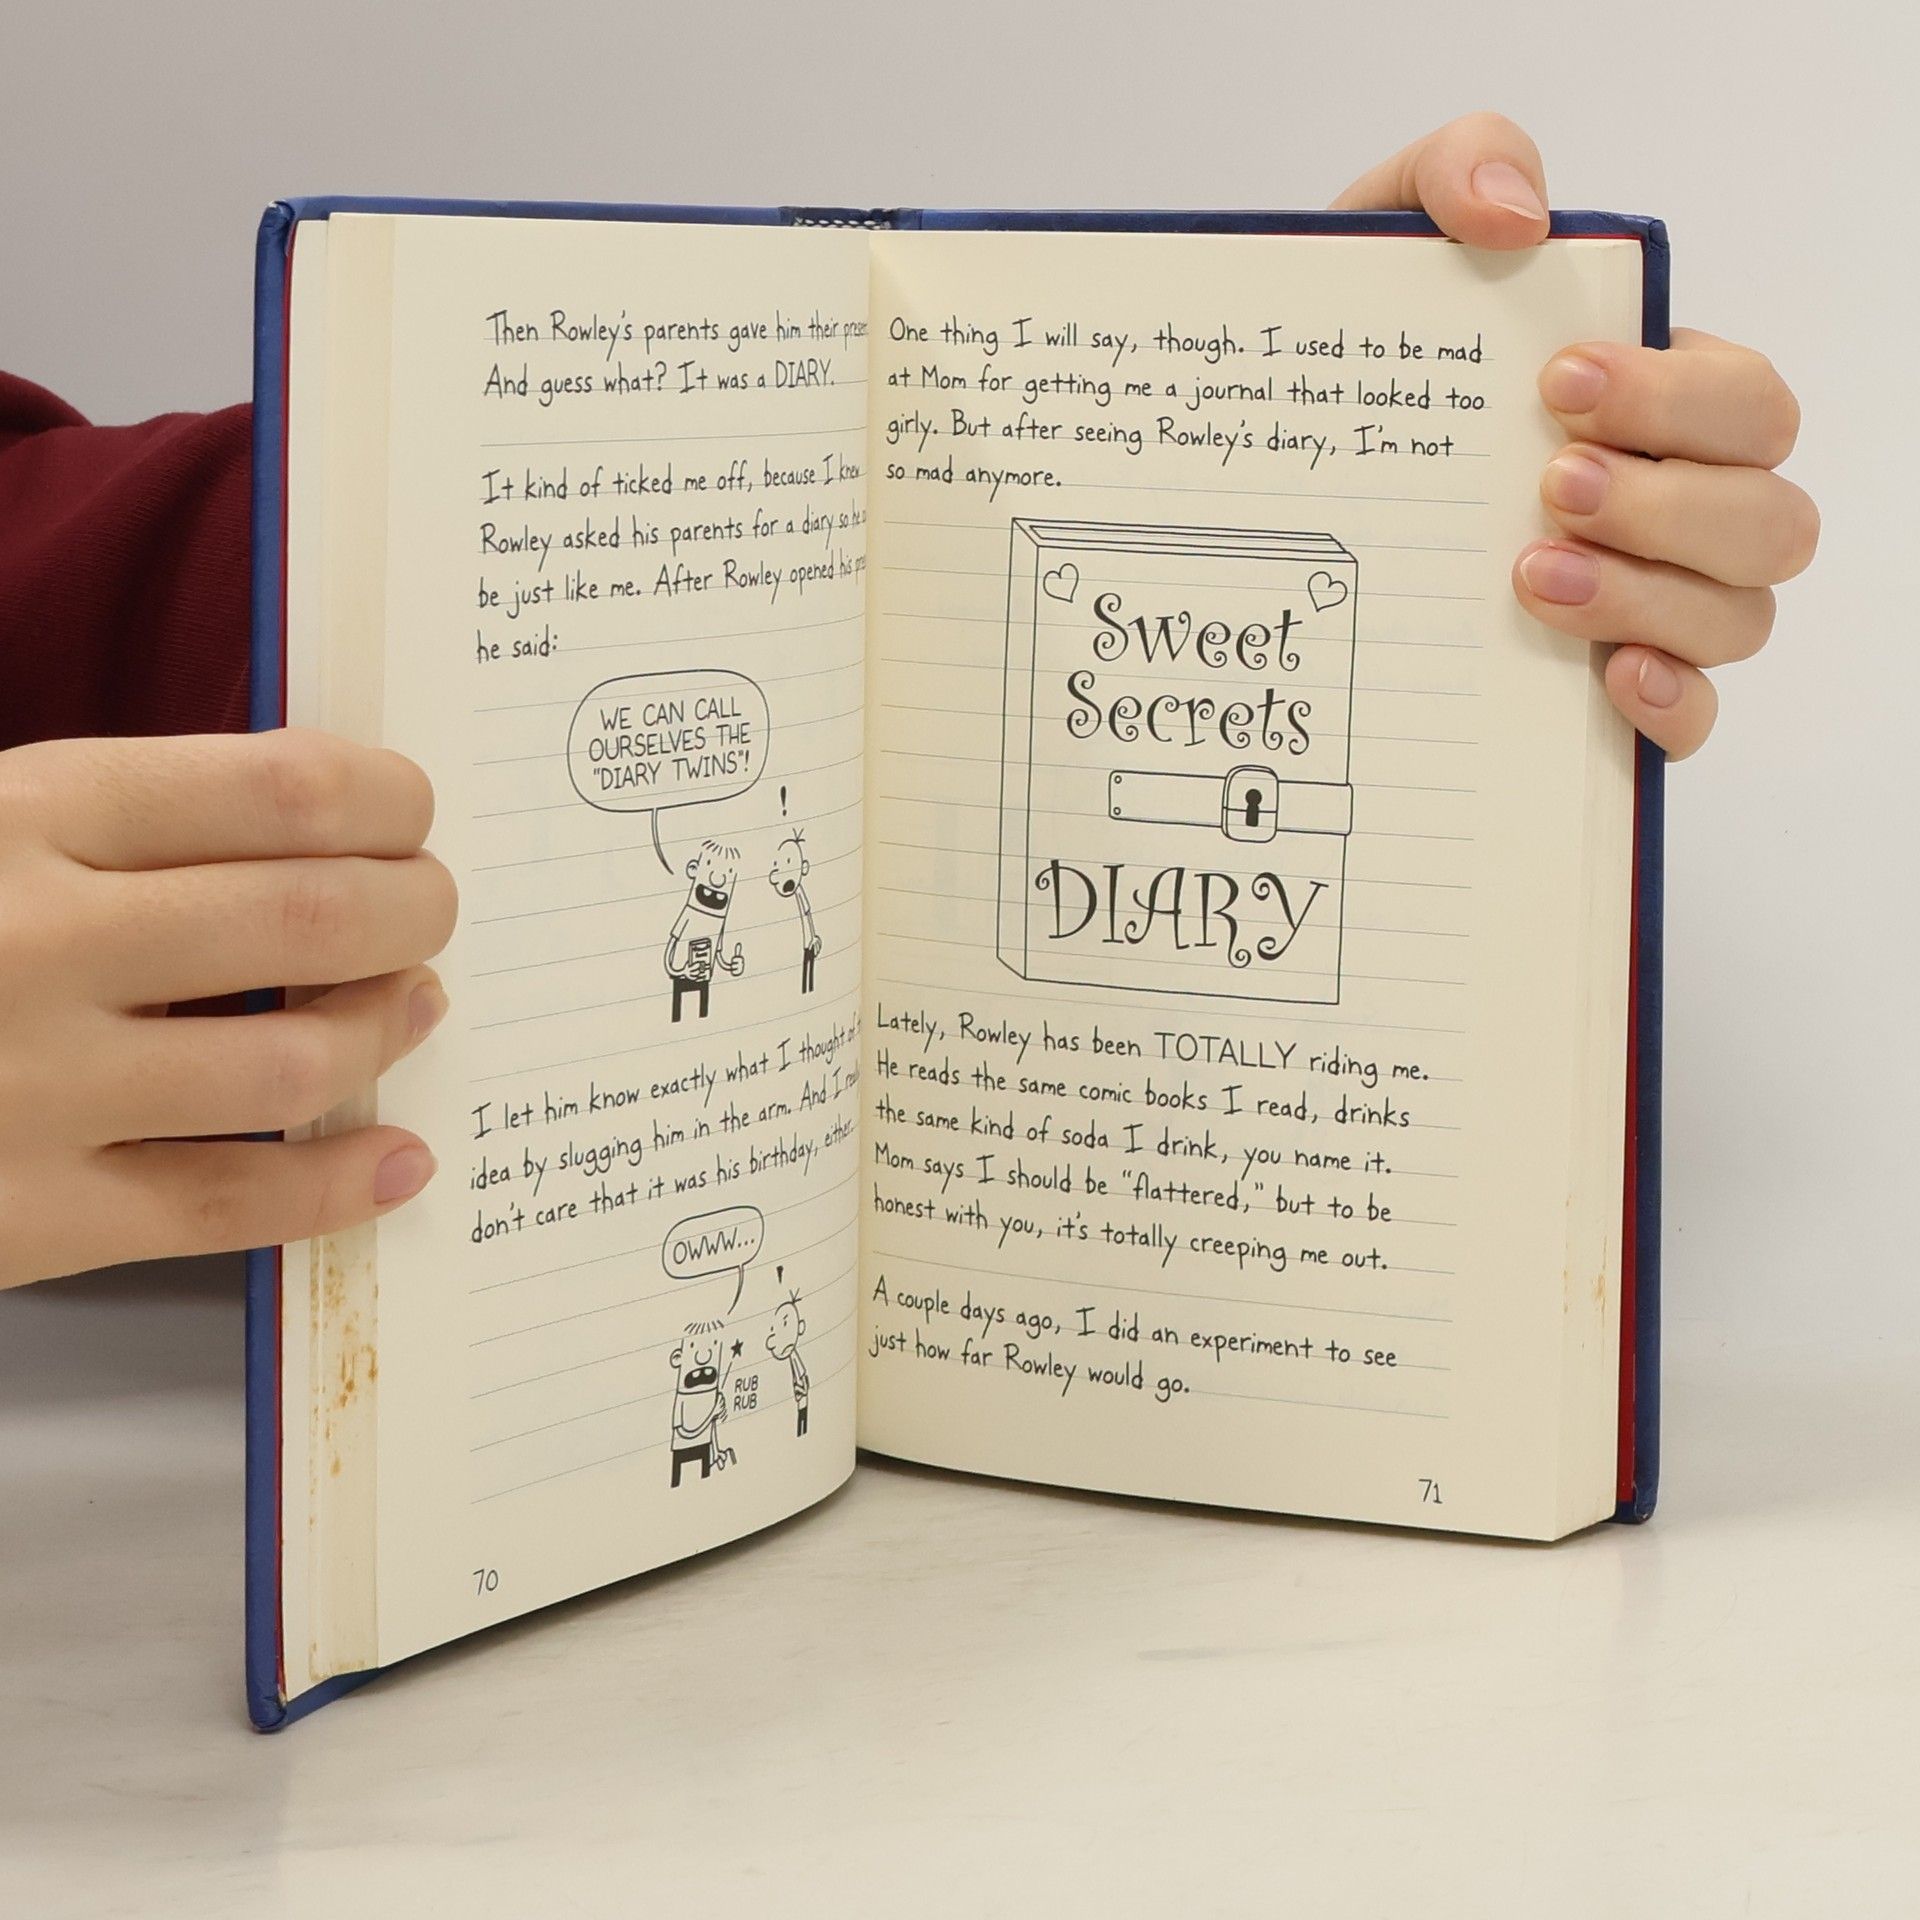 Then Rowley's parents gave him their
And guess what? It was a DIARY.
It kind of ticked me off, because I knew
Rowley asked his parents for a diary so he
be just like me. After Rowley opened his
he said:
WE CAN CALL
OURSELVES THE
"DIARY TWINS"!
!
I let him know exactly what I thought of
idea by slugging him in the arm. And I
don't care that it was his birthday, either.
OWWW...
RUB
RUB
70
One thing I will say, though. I used to be mad
at Mom for getting me a journal that looked too
girly. But after seeing Rowley's diary, I'm not
so mad anymore.
Sweet
Secrets
DIARY
Lately, Rowley has been TOTALLY riding me.
He reads the same comic books I read, drinks
the same kind of soda I drink, you name it.
Mom says I should be "flattered," but to be
honest with you, it's totally creeping me out.
A couple days ago, I did an experiment to see
just how far Rowley would go.
71